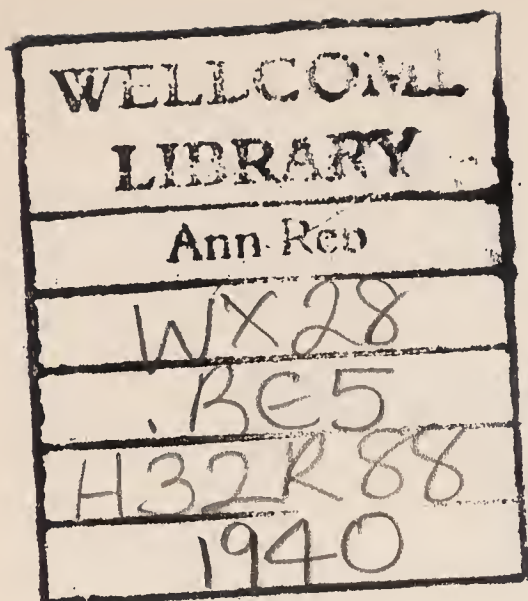 WELLCOME
LIBRARY
Ann Rep
WX28
.BE5
H32R88
1940